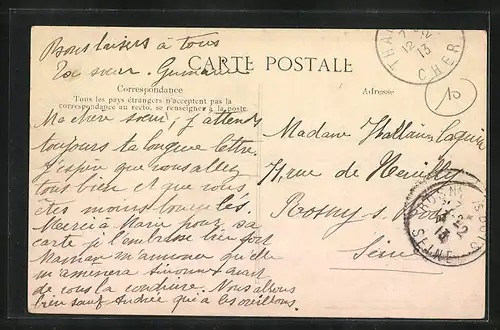 Bons baisers à tous
Ta sœur. Germaine
CARTE POSTALE
Correspondance
Tous les pays étrangers n'acceptent pas la
correspondance au recto, se renseigner à la poste.
Adresse
Ma chère sœur, j'attends
toujours ta longue lettre.
J'espère que vous allez
tous bien et que vous
êtes moins
Merci à Marie pour sa
carte je l'embrasse bien fort
Maman m'annonce qu'elle
m'amènera Simonne avant
de vous la conduire. Nous allons
bien sauf Andrée qui a les oreillons.
Madame
rue de Neuilly
Rosny s. Bois
Seine
CHER
12 13
10
SEINE